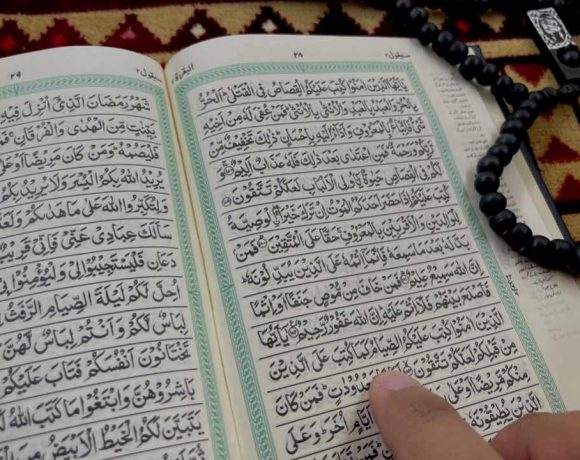 سيقول ٢ ٢٨ البقرة ٢
يٰٓاَيُّهَا الَّذِيْنَ اٰمَنُوْا كُتِبَ عَلَيْكُمُ الْقِصَاصُ فِى الْقَتْلٰى اَلْحُرُّ
بِالْحُرِّ وَالْعَبْدُ بِالْعَبْدِ وَالْاُنْثٰى بِالْاُنْثٰى فَمَنْ عُفِىَ لَهٗ مِنْ اَخِيْهِ
شَىْءٌ فَاتِّبَاعٌۢ بِالْمَعْرُوْفِ وَاَدَآءٌ اِلَيْهِ بِاِحْسَانٍ ذٰلِكَ تَخْفِيْفٌ مِّنْ
رَّبِّكُمْ وَرَحْمَةٌ فَمَنِ اعْتَدٰى بَعْدَ ذٰلِكَ فَلَهٗ عَذَابٌ اَلِيْمٌ وَ
لَكُمْ فِى الْقِصَاصِ حَيٰوةٌ يّٰٓاُولِى الْاَلْبَابِ لَعَلَّكُمْ تَتَّقُوْنَ
كُتِبَ عَلَيْكُمْ اِذَا حَضَرَ اَحَدَكُمُ الْمَوْتُ اِنْ تَرَكَ خَيْرَا اۨلْوَصِيَّةُ
لِلْوَالِدَيْنِ وَالْاَقْرَبِيْنَ بِالْمَعْرُوْفِ حَقًّا عَلَى الْمُتَّقِيْنَ فَمَنْ
بَدَّلَهٗ بَعْدَ مَا سَمِعَهٗ فَاِنَّمَآ اِثْمُهٗ عَلَى الَّذِيْنَ يُبَدِّلُوْنَهٗ
اِنَّ اللّٰهَ سَمِيْعٌ عَلِيْمٌ فَمَنْ خَافَ مِنْ مُّوْصٍ جَنَفًا اَوْ اِثْمًا
فَاَصْلَحَ بَيْنَهُمْ فَلَآ اِثْمَ عَلَيْهِ اِنَّ اللّٰهَ غَفُوْرٌ رَّحِيْمٌ يٰٓاَيُّهَا
الَّذِيْنَ اٰمَنُوْا كُتِبَ عَلَيْكُمُ الصِّيَامُ كَمَا كُتِبَ عَلَى الَّذِيْنَ
مِنْ قَبْلِكُمْ لَعَلَّكُمْ تَتَّقُوْنَ مَّعْدُوْدٰتٍ فَمَنْ كَانَ
مِنْكُمْ مَّرِيْضًا اَوْ عَلٰى اَيَّامٍ اُخَرَ وَعَلَى
الَّذِيْنَ يُطِيْقُوْنَهٗ
سيقول ٢ ٢٩
شَهْرُ رَمَضَانَ الَّذِىْٓ اُنْزِلَ فِيْهِ
بَيِّنٰتٍ مِّنَ الْهُدٰى وَالْفُرْقَانِ
فَلْيَصُمْهُ وَمَنْ كَانَ مَرِيْضًا اَوْ
يُرِيْدُ اللّٰهُ بِكُمُ الْيُسْرَ وَلَا يُرِيْدُ بِكُمُ
وَلِتُكَبِّرُوا اللّٰهَ عَلٰى مَا هَدٰىكُمْ وَلَعَلَّ
سَاَلَكَ عِبَادِىْ عَنِّىْ فَاِنِّىْ قَرِيْبٌ
دَعَانِ فَلْيَسْتَجِيْبُوْا لِىْ وَلْيُؤْمِنُوْا بِىْ
اُحِلَّ لَكُمْ لَيْلَةَ الصِّيَامِ الرَّفَثُ
لِبَاسٌ لَّكُمْ وَاَنْتُمْ لِبَاسٌ لَّهُنَّ
تَخْتَانُوْنَ اَنْفُسَكُمْ فَتَابَ عَلَيْكُمْ
بَاشِرُوْهُنَّ وَابْتَغُوْا مَا كَتَبَ اللّٰهُ
يَتَبَيَّنَ لَكُمُ الْخَيْطُ الْاَبْيَضُ مِنَ